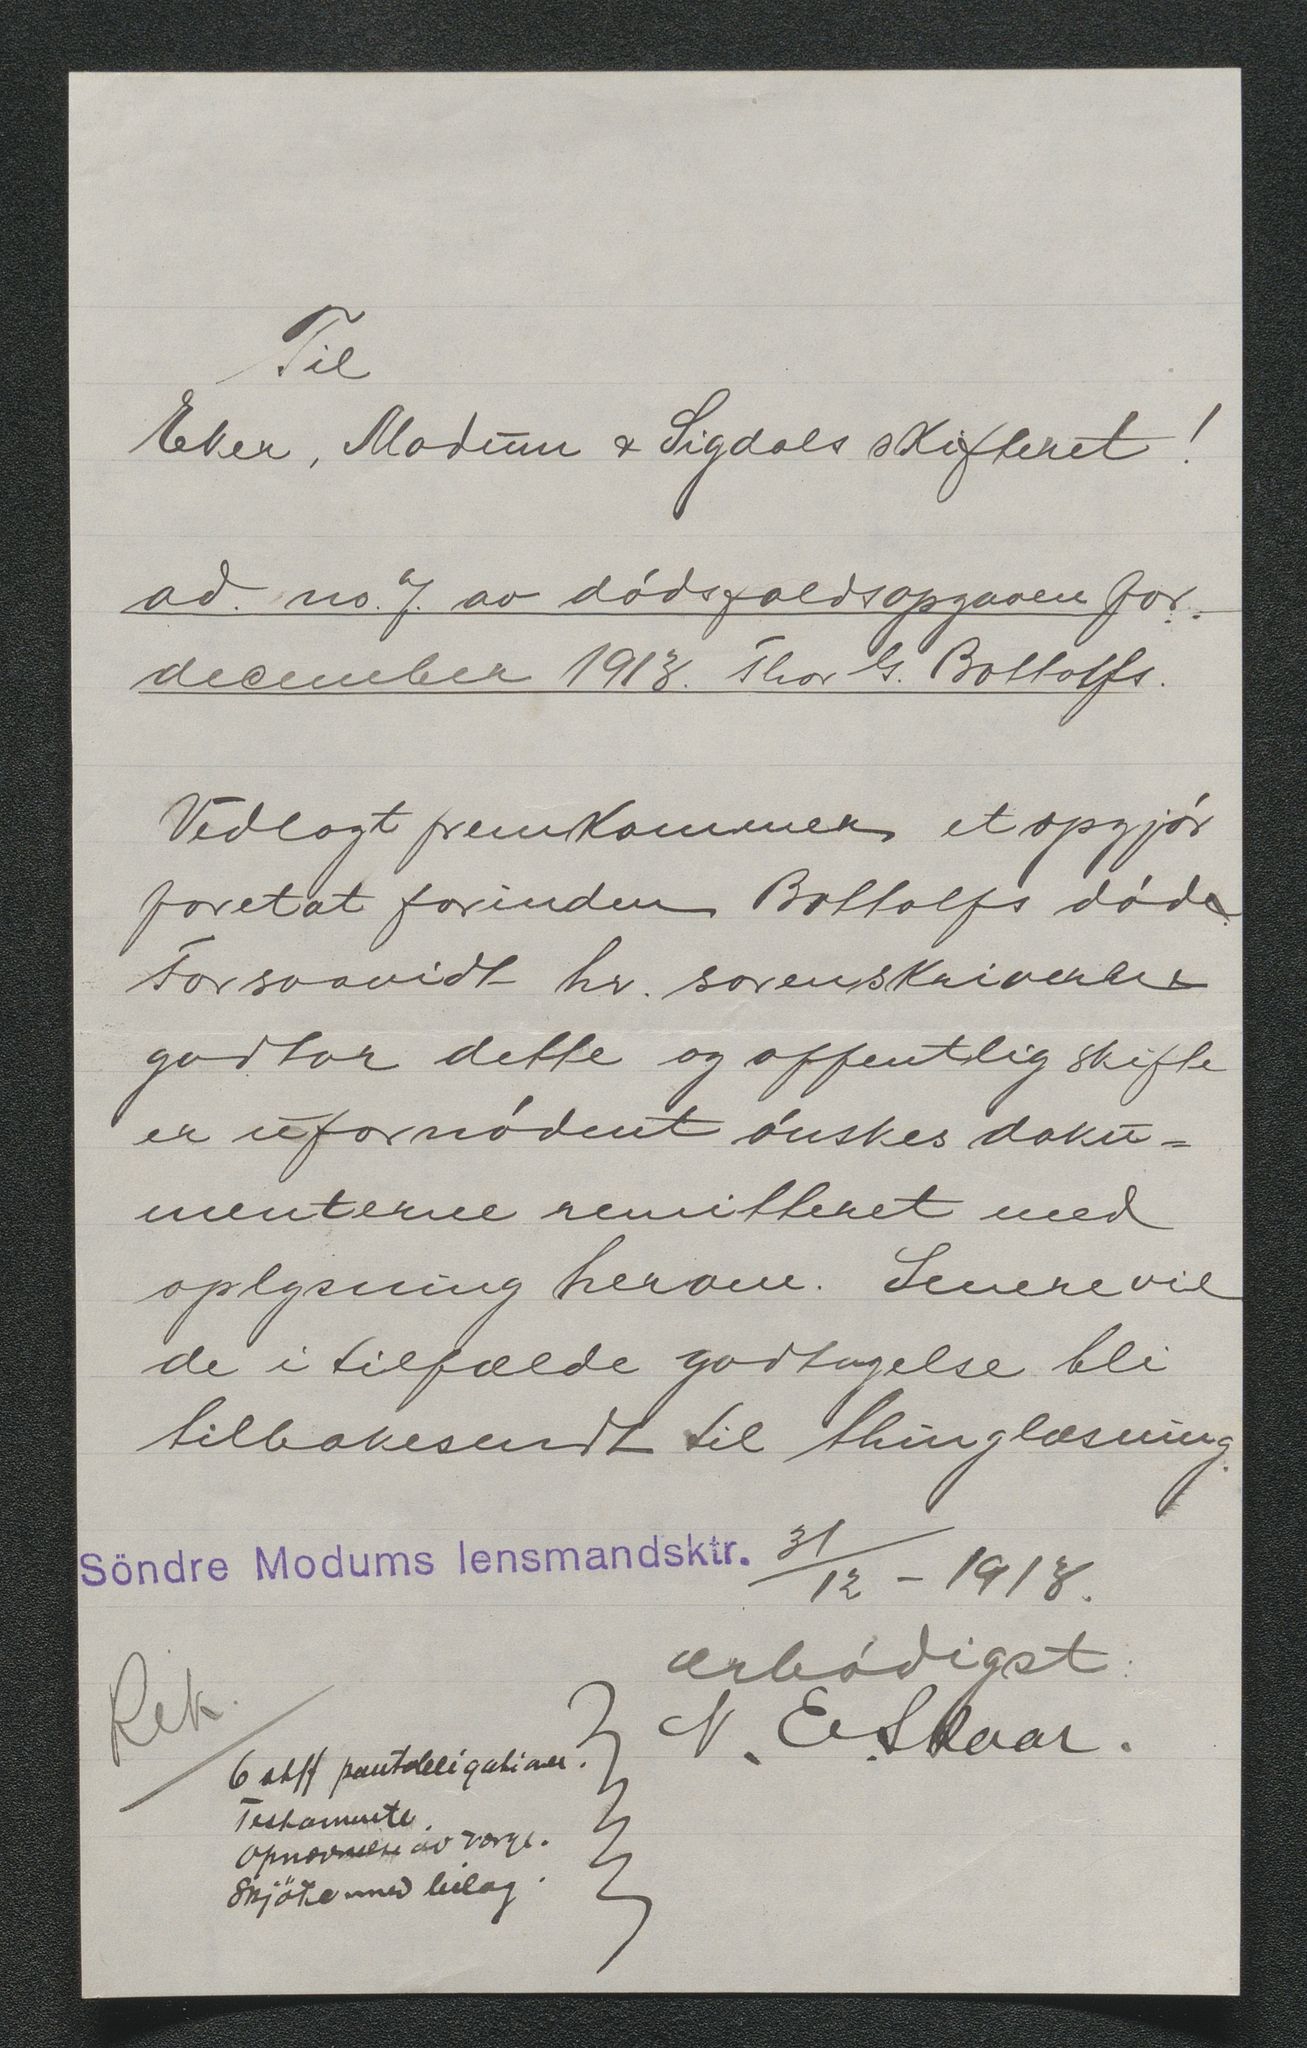 Til
Eker, Modum & Sigdals skifteret!
ad. no. 7. av dödsfaldsopgaven for
december 1918. Thor G. Bottolfs.
Vedlagt fremkommer et opgjör
foretat forinden Bottolfs död.
Forsaavidt hr. sorenskriveren
godtar dette og offentlig skifte
er ufornödent önskes doku-
menterne remitteret med
oplysning herom. Senere vil
de i tilfælde godtagelse bli
tilbakesendt til thinglæsning.
Söndre Modums lensmandsktr. 31/12 - 1918.
ærbödigst
N. E. Skaar.
Rek.
6 stkk pantobligationer.
Testamente.
Opnævnelse av værge.
Skjöte med bilag.